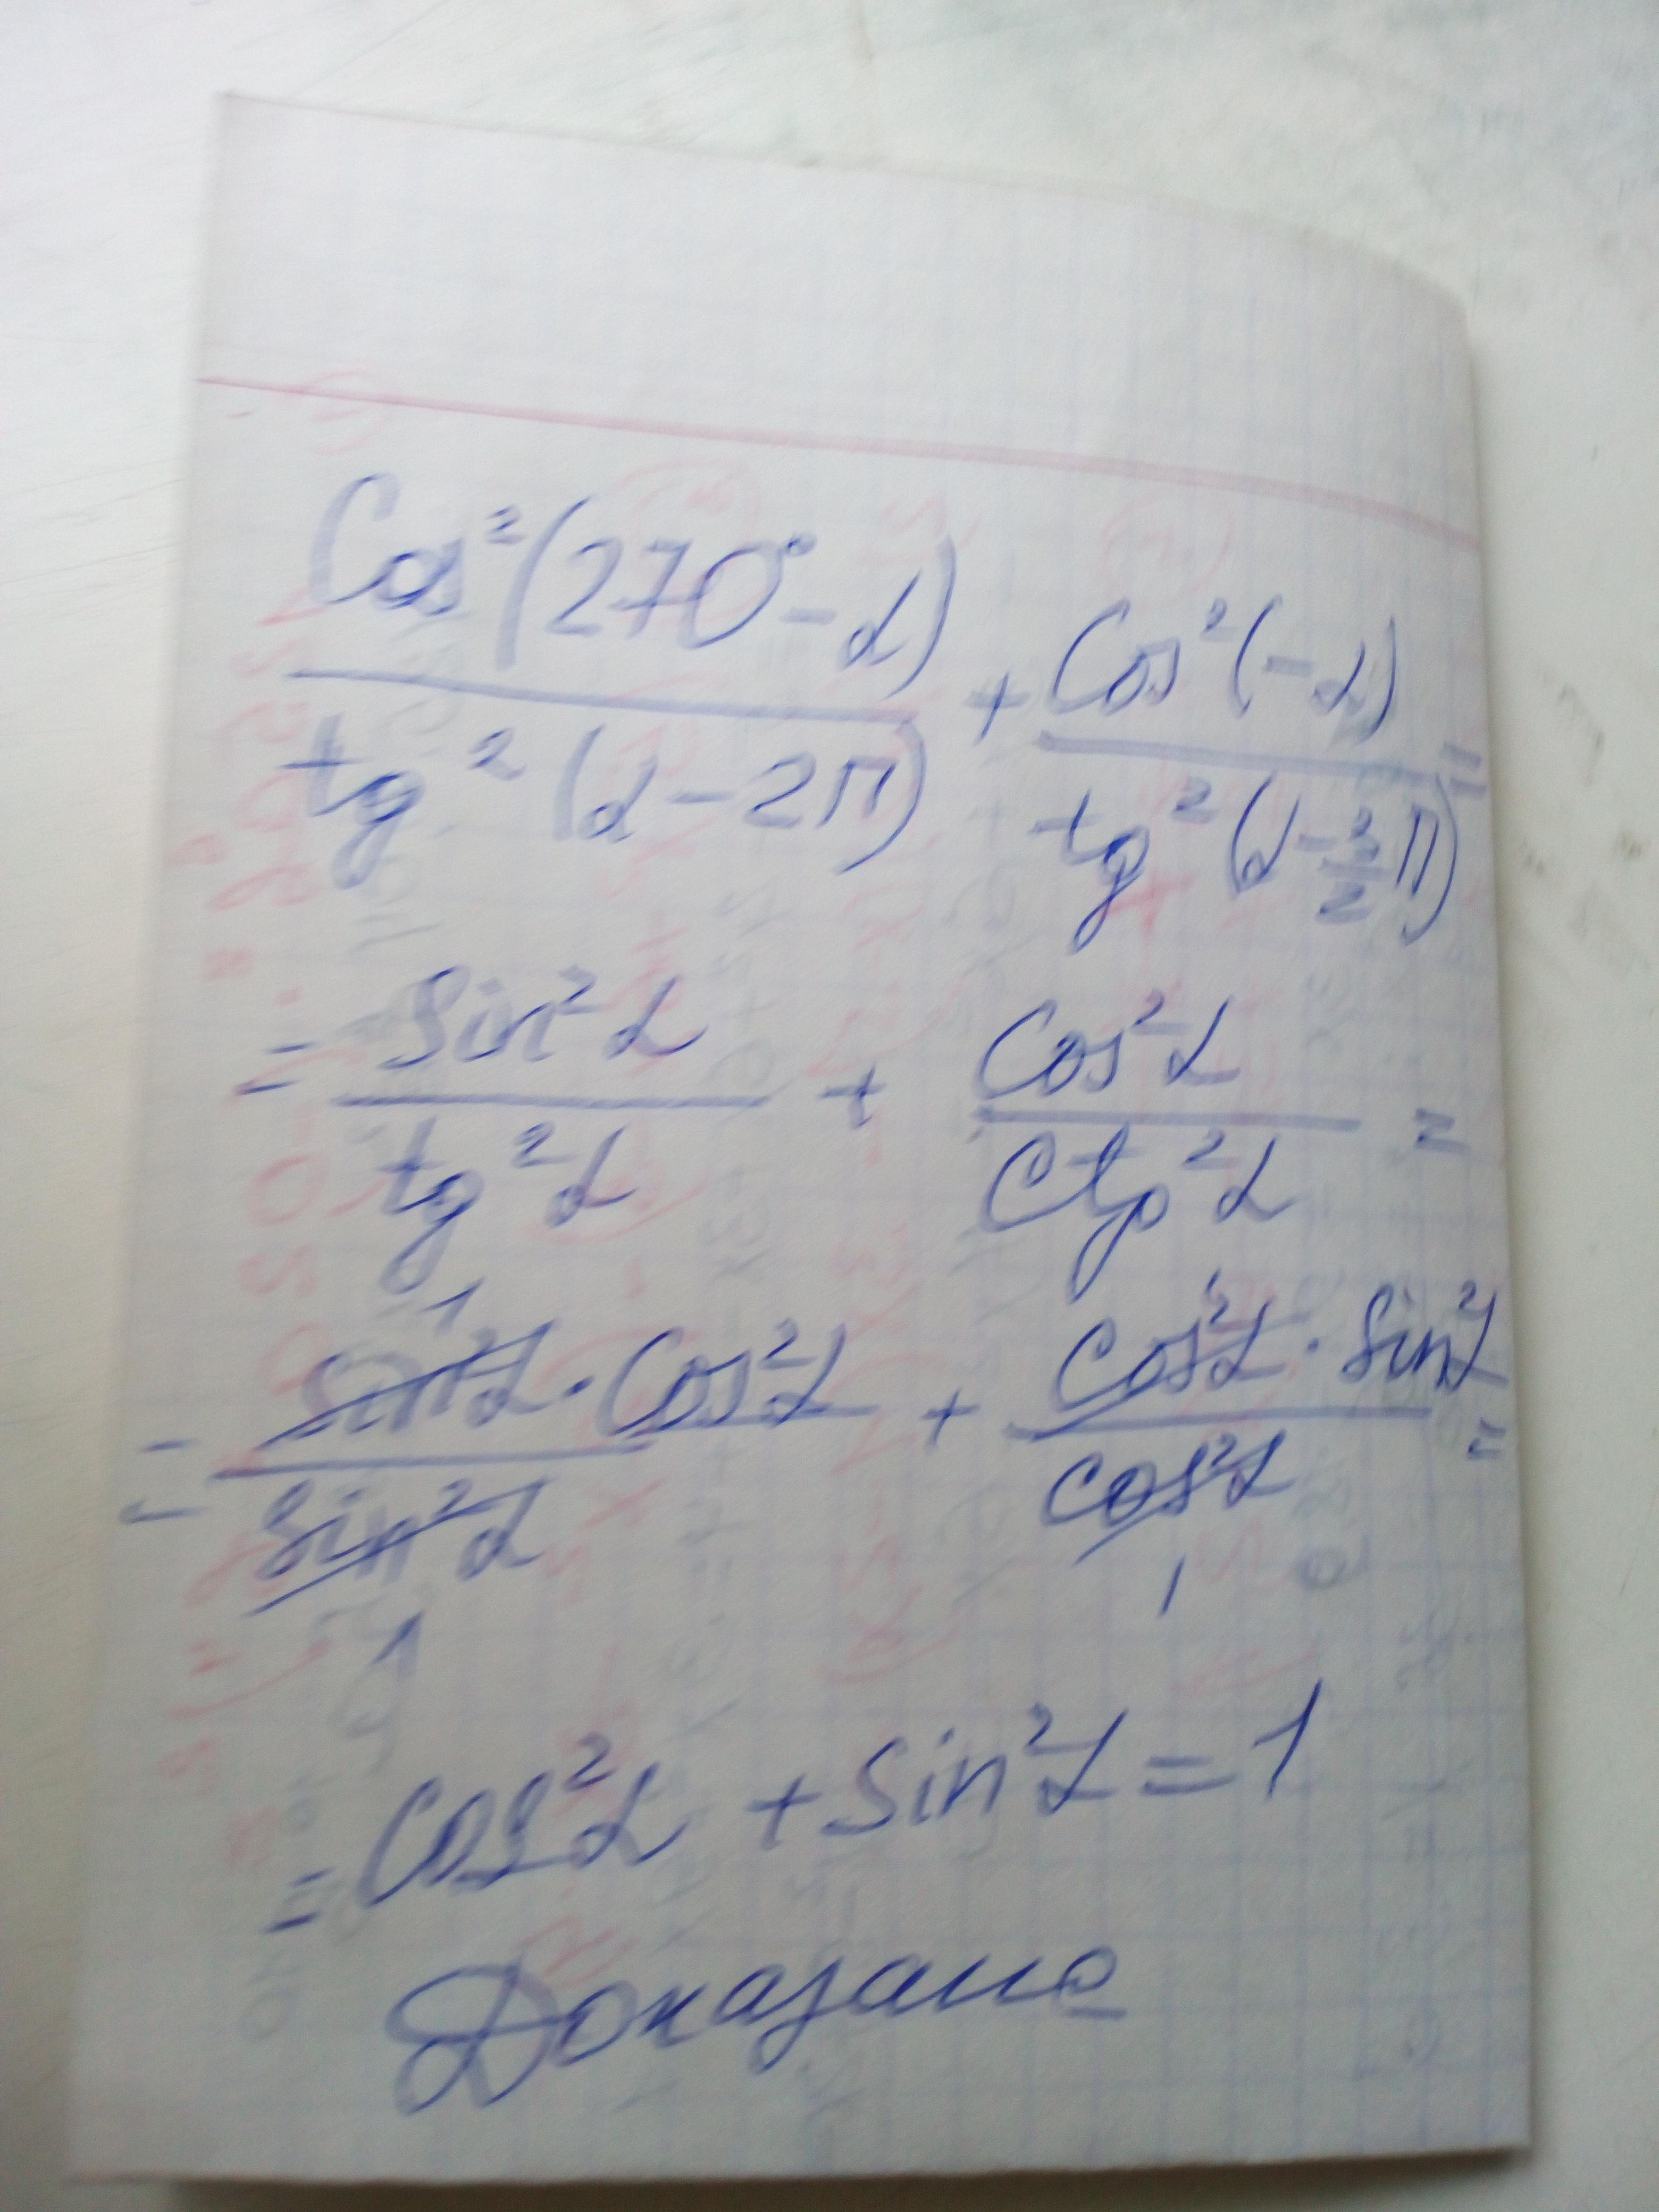 Cos²(270°-α)/tg²(α-2π) + Cos²(-α)/tg²(α-3/2π) =
= Sin²α/tg²α + Cos²α/Ctg²α =
= Sin²α·Cos²α/Sin²α + Cos²α·Sin²α/Cos²α =
= Cos²α + Sin²α = 1
Доказано